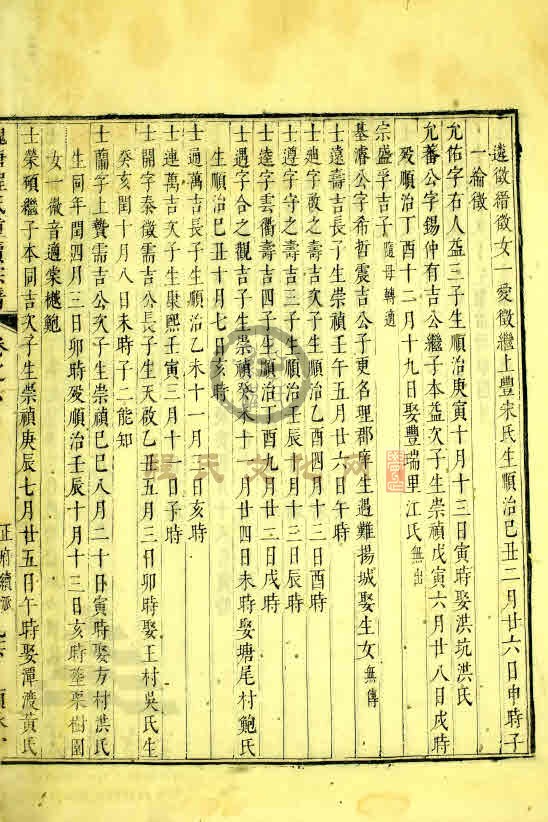 遠徵縉徵女一愛徵繼上豐朱氏生順治己丑二月廿六日申時子
一綸徵
允佑字右人益三子生順治庚寅十月十三日寅時娶洪坑洪氏
允蕃公字錫仲有吉公繼子本益次子生崇禎戊寅六月廿八日戌時
歿順治丁酉十二月十九日娶豐瑞里江氏無出
宗盛孚吉子隨母轉適
基濬公字希哲震吉公子更名理郡庠生遇難揚城娶生女無傳
士遠壽吉長子生崇禎壬午五月廿六日午時
士迎字改之壽吉次子生順治乙酉四月十三日酉時
士遵字守之壽吉三子生順治壬辰十月十三日辰時
士逵字雲衢壽吉四子生順治丁酉九月廿二日戌時
士遇字合之觀吉子生崇禎癸未十一月廿四日未時娶塘尾村鮑氏
生順治己丑十月七日亥時
士通萬吉長子生順治乙未十一月二日亥時
士連萬吉次子生康熙壬寅三月十一日子時
士開字泰徵需吉公長子生天啟乙丑五月三日卯時娶王村吳氏生
癸亥閏十月八日未時子二能知
士蘭字上賛需吉公次子生崇禎己巳八月二十日寅時娶方村洪氏
生同年閏四月三日卯時歿順治壬辰十月十三日亥時葬栗樹園
女一徵音適棠樾鮑
士榮碩繼子本同吉次子生崇禎庚辰七月廿五日午時娶潭渡黃氏